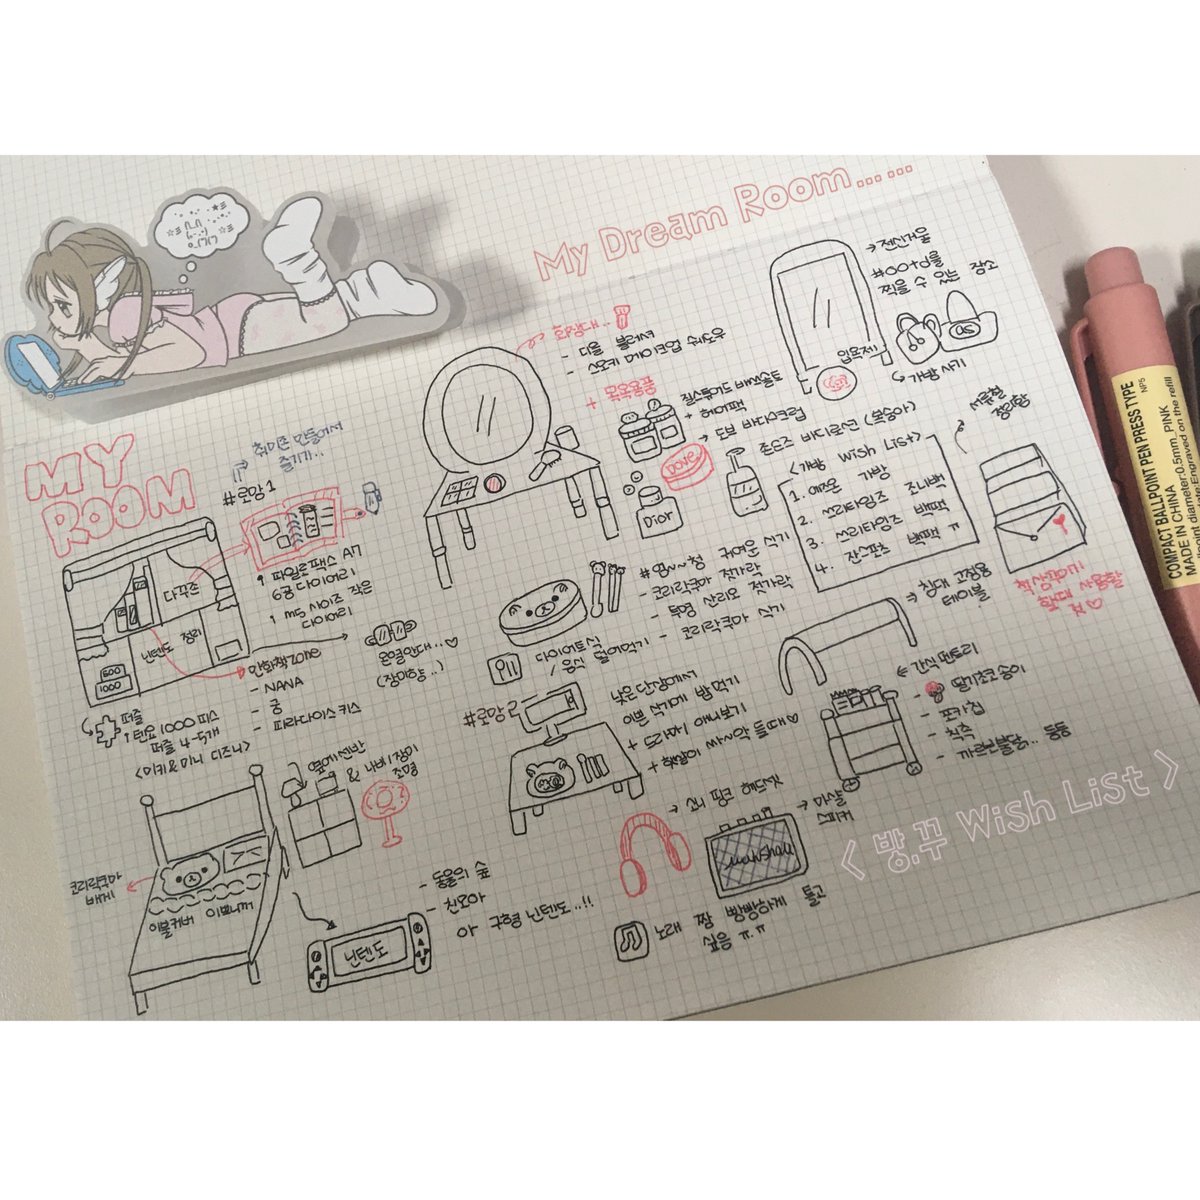 My Dream Room......
MY
ROOM
취미존 만들어서
즐기기..
#로망1
다꾸존
닌텐도 정리
500
1000
퍼즐
1000 피스
퍼즐 4-5개
<미키&미니 디즈니>
파일로팩스 A7
6공 다이어리
m5 사이즈 작은
다이어리
만화책zone
- NANA
- 궁
- 파라다이스 키스
온열안대..♡
(장미향..)
화장대..
- 디올 블레시
- 스모키 메이크업 쉐도우
+ 목욕용품
배쓰솔트
+ 헤어팩
→ 도브 바디스크럽
Dove
Dior
존슨즈 바디로션 (복숭아)
→ 전신거울
#ootd를
찍을 수 있는 장소
입욕제
가방 사기
<가방 Wish List>
1. 애즈온 가방
2. 쓰리타임즈 조니백
3. 쓰리타임즈 백팩
4. 잔스포츠 백팩 ㅠ
서류철
정리함
책상꾸미기
할때 사용할
것♡
#엄~~청 귀여운 식기
- 코리락쿠마 젓가락
- 투명 산리오 젓가락
- 코리락쿠마 식기
다이어트식
/ 음식 덜어먹기
#로망2
낮은 탄상에서
이쁜 식기에 밥 먹기
+ 25인치 애니보기
+ 햇살이 싸~악 들때♡
→ 침대 고정용
테이블
← 간식 팬트리
- 딸기초코송이
- 포카칩
- 칙촉
- 까르보불닭.. 등등
옆에 선반
& 나비 장이
조명
코리락쿠마
베개
이불커버 이쁘니까
닌텐도
- 동물의 숲
- 친모아
아 구형 닌텐도..!!
→ 소니 핑크 헤드셋
→ 마샬
스피커
Marshall
노래 짱 빵빵하게 틀고
싶음 ㅠ.ㅠ
<방.꾸 Wish List>
COMPACT BALLPOINT PEN PRESS TYPE
NP5
diameter:0.5mm. PINK
MADE IN CHINA
Engraved on the refill